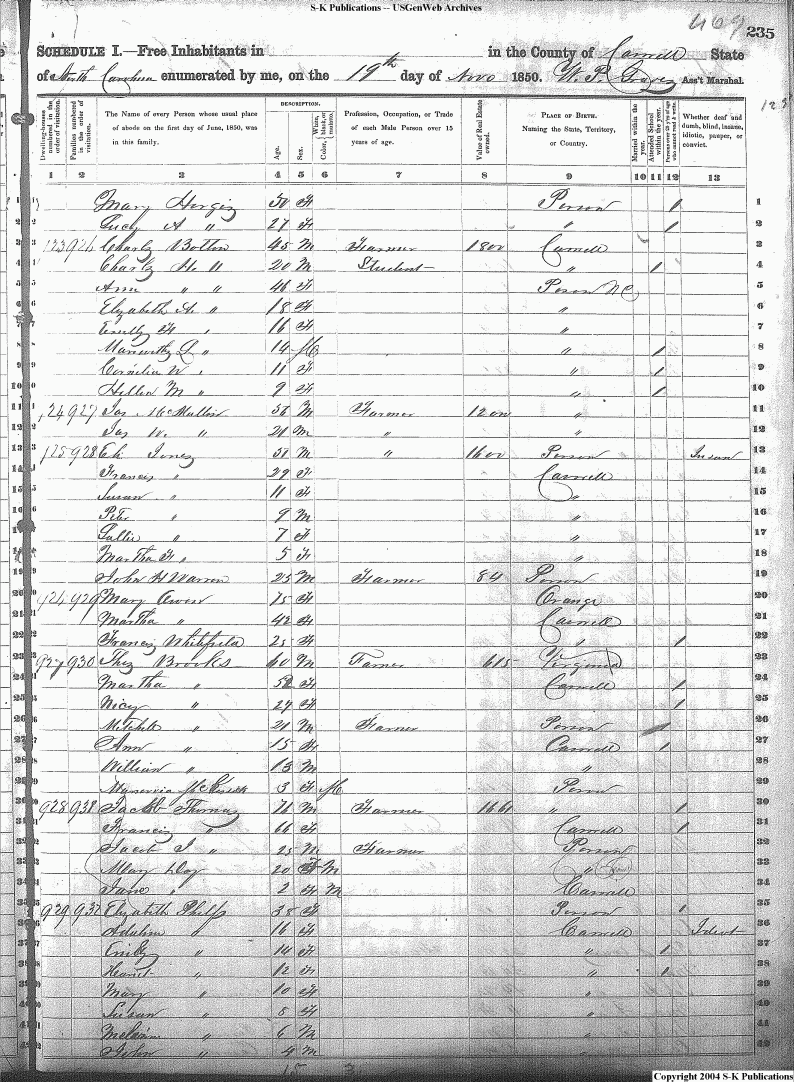 S-K Publications -- USGenWeb Archives
409
235
SCHEDULE I.—Free Inhabitants in in the County of Caswell State
of North Carolina enumerated by me, on the 19th day of Novo 1850. W. P. Graves Ass't Marshal.
Dwelling-houses numbered in the order of visitation.
Families numbered in the order of visitation.
The Name of every Person whose usual place of abode on the first day of June, 1850, was in this family.
DESCRIPTION.
Age.
Sex.
Color, White, black, or mulatto.
Profession, Occupation, or Trade of each Male Person over 15 years of age.
Value of Real Estate owned.
PLACE OF BIRTH. Naming the State, Territory, or Country.
Married within the year.
Attended School within the year.
Persons over 20 y'rs of age who cannot read & write.
Whether deaf and dumb, blind, insane, idiotic, pauper, or convict.
1 2 3 4 5 6 7 8 9 10 11 12 13
1 Mary 50 F Person / 1
2 Lucy A " 27 F " / 2
3 Charly Bolton 45 M Farmer 1800 Caswell 3
4 Charly H. " 20 M Student " / 4
5 Ann " " 46 F Person NC 5
6 Elizabeth A. " 18 F " 6
7 Emilly F. " 16 F " 7
8 L " 14 " / 8
9 Cornelia W " 11 F " / 9
10 Hellen M " 9 F " / 10
11 124 927 Jas McMullin 56 M Farmer 1200 " 11
12 Jas W. " 21 M " " 12
13 125 928 Jones 51 M " 1600 Person Insan 13
14 Francis " 29 F Caswell 14
15 Susan " 11 F " 15
16 Peter " 9 M " 16
17 Sallie " 7 F " 17
18 Martha F " 5 F " 18
19 John H Warren 25 M Farmer 84 Person 19
20 929 Mary Owen 75 F Orange 20
21 Martha " 42 F Caswell 21
22 Francis Whitfield 25 F " / 22
23 927 930 Brooks 60 M Farmer 615 Virginia 23
24 Martha " 52 F Caswell / 24
25 Nicy " 24 F " / 25
26 Mitchell " 21 M Farmer Person / 26
27 Ann " 15 F Caswell / 27
28 William " 13 M " 28
29 3 F M Person 29
30 928 931 Jacob Thomas 71 M Farmer 1661 " / 30
31 Francis " 66 F Caswell / 31
32 Jacob J " 25 M Farmer Person 32
33 May Day 20 F M " 33
34 Jane " 2 F M Caswell 34
35 929 932 Elizabeth Phelps 38 F Person / 35
36 Adaline " 16 F Caswell Ideot 36
37 Emily " 14 F " / 37
38 Hariet " 12 F " / 38
39 Mary " 10 F " 39
40 Susan " 8 F " 40
41 " 6 M " 41
42 John " 4 M " 42
15 3
Copyright 2004 S-K Publications